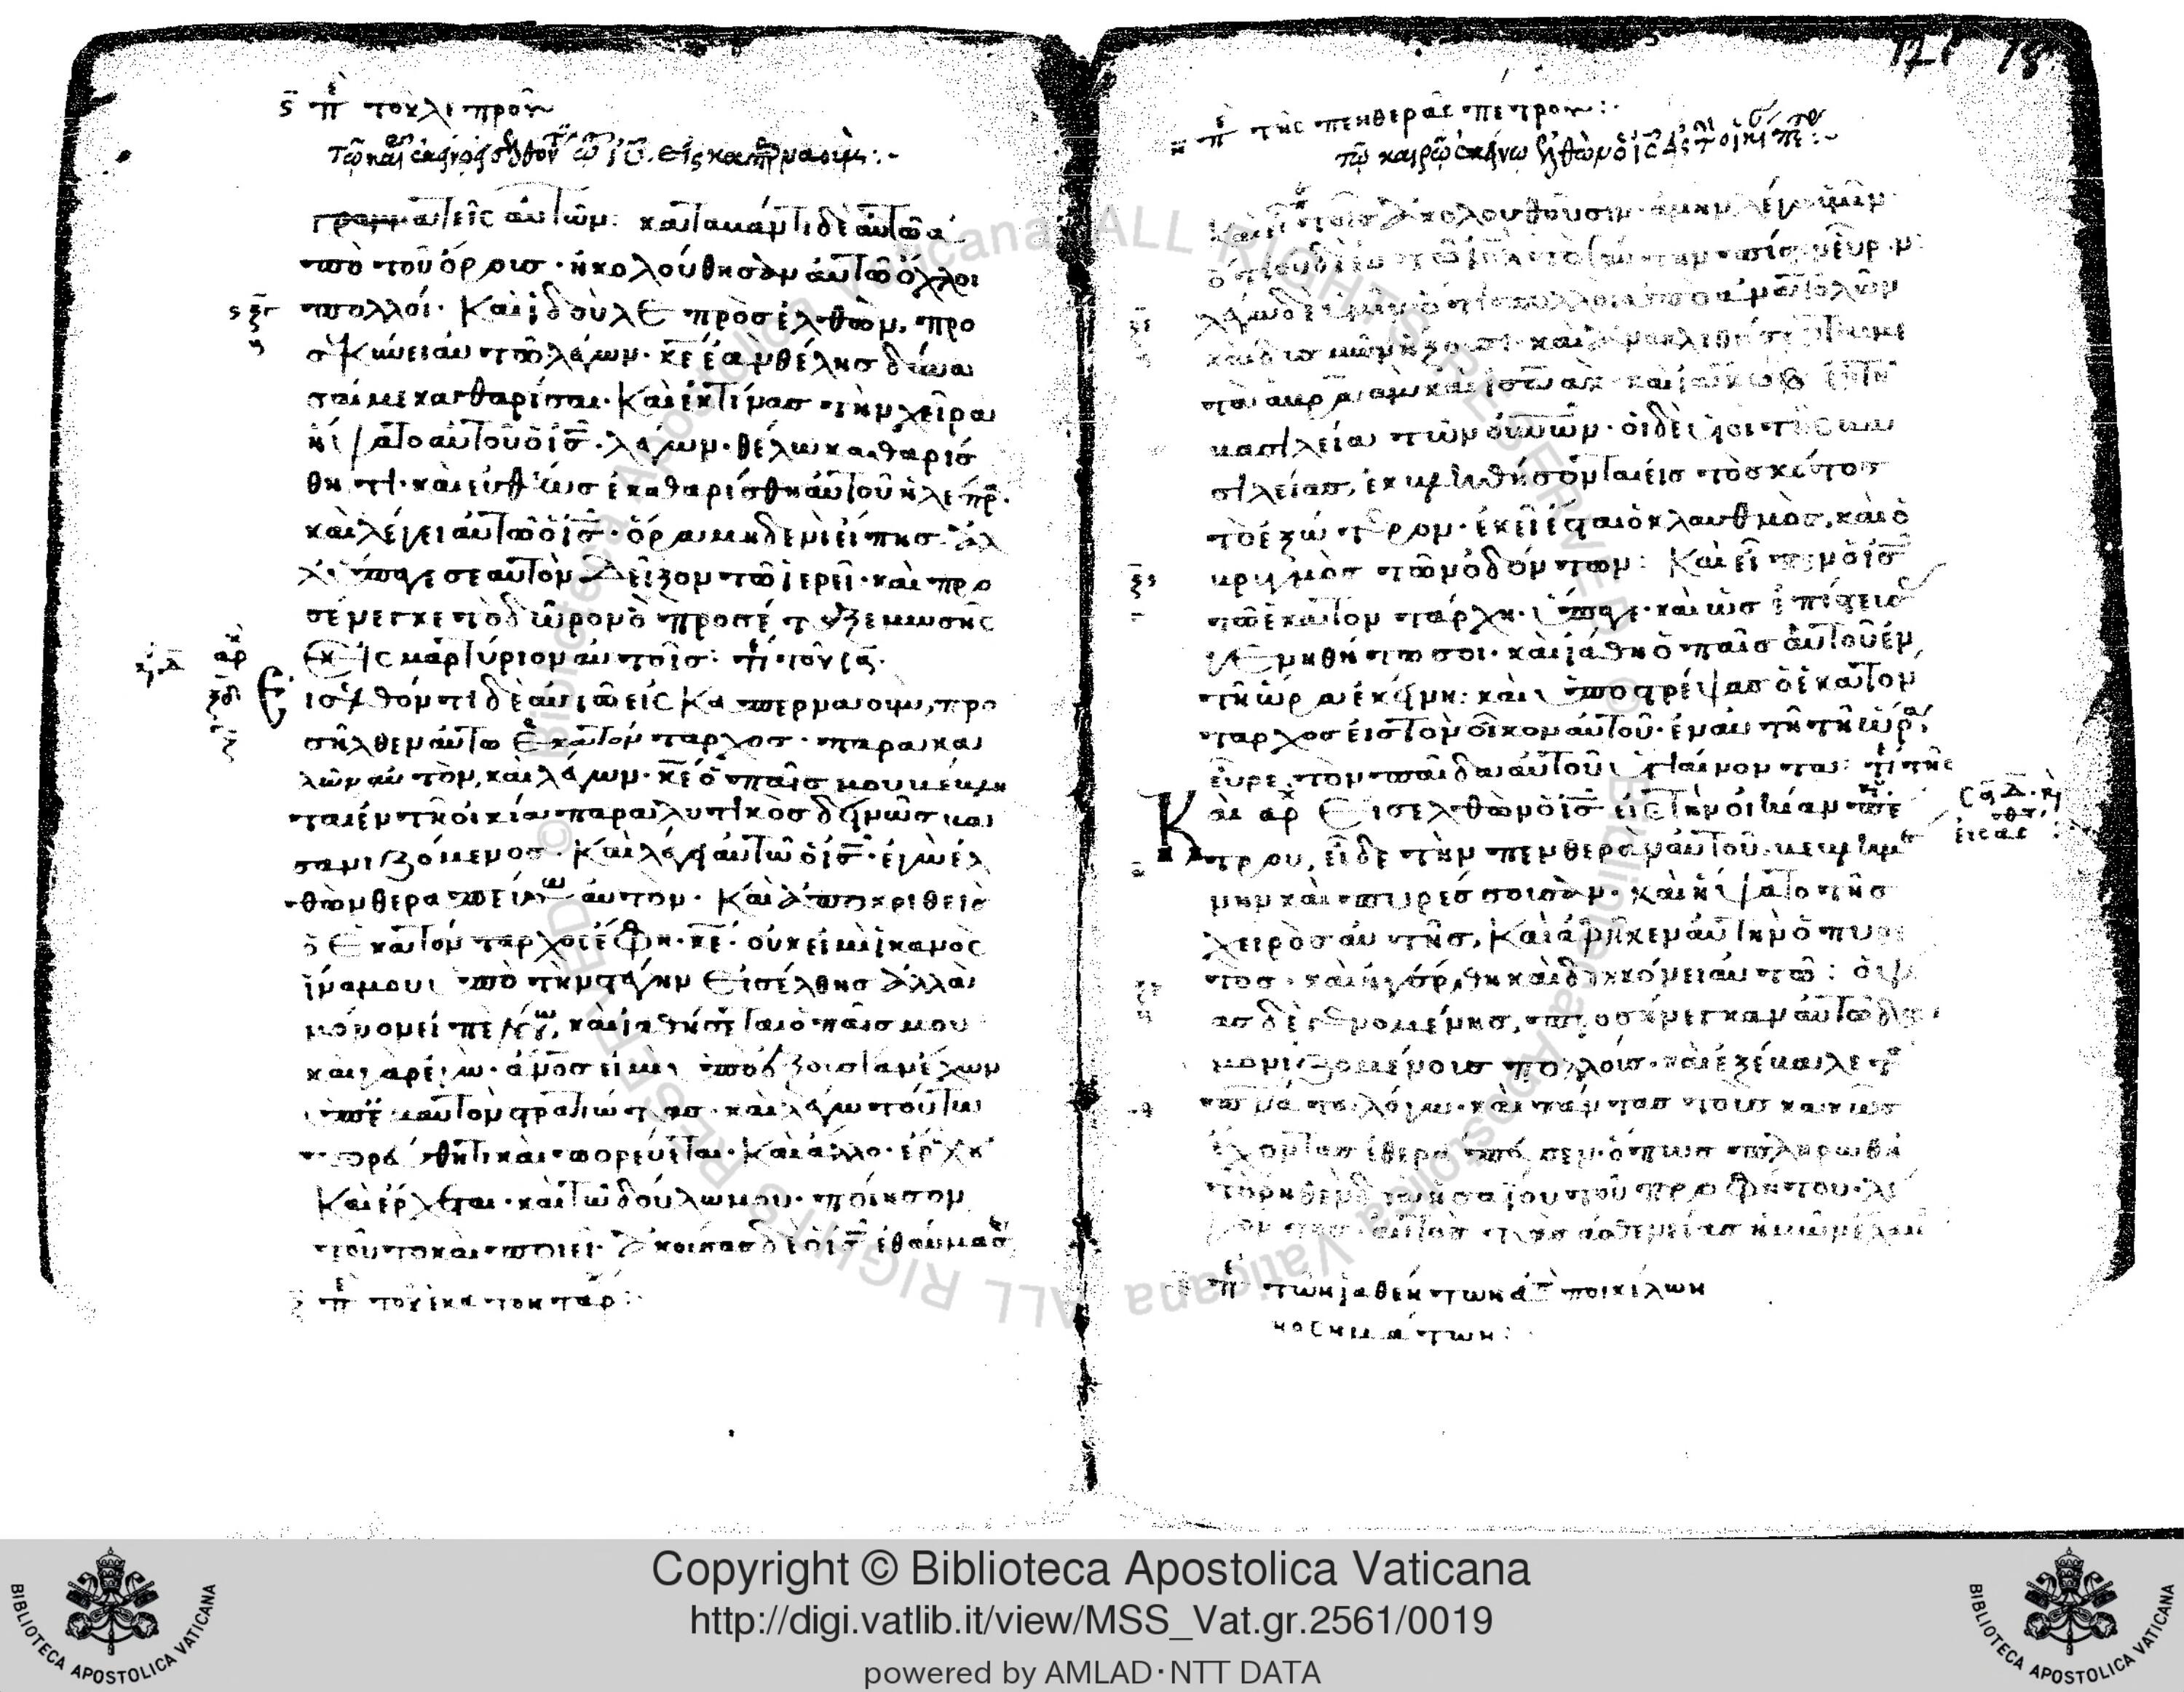 ϛ πε τοῦ λεπροῦ
γραμματεῖς αὐτῶν: καταβάντι δὲ αὐτῶ ἀ
πὸ τοῦ ὄρους · ἠκολούθησαν αὐτῶ ὄχλοι
πολλοί · Καὶ ἰδοὺ λε προσελθὼν, προ
σεκύνει αὐτῶ λέγων · κε ἐὰν θέλης δύνα
σαί με καθαρίσαι · Καὶ ἐκτίνας τὴν χεῖρα
ἥψατο αὐτοῦ ὁ ις · λέγων · θέλω καθαρίσ
θητι · καὶ εὐθέως ἐκαθαρίσθη αὐτοῦ ἡ λέπρ.
καὶ λέγει αὐτῶ ὁ ις · ὅρα μηδενὶ εἴπης ἀλ
λὰ ὕπαγε σεαυτὸν δεῖξον τῶ ἱερεῖ · καὶ προ
σένεγκε τὸ δῶρον ὃ προσέταξε μωσῆς
Εἰς μαρτύριον αὐτοῖς:
Εἰσελθόντι δὲ αὐτῶ εἰς Καπερναοὺμ, προ
σῆλθεν αὐτῶ Ἑκατόνταρχος · παρακα
λῶν αὐτὸν, καὶ λέγων · κε ὁ παῖς μου βέβλη
ται ἐν τῆ οἰκία παραλυτικὸς δεινῶς βα
σανιζόμενος · Καὶ λέγει αὐτῶ ὁ ις · ἐγὼ ἐλ
θὼν θεραπεύσω αὐτὸν · Καὶ ἀποκριθεὶς
ὁ Ἑκατόνταρχος ἔφη · κε · οὐκ εἰμὶ ἱκανὸς
ἵνα μου ὑπὸ τὴν στέγην Εἰσέλθης ἀλλὰ
μόνον εἰπὲ λόγω, καὶ ἰαθήσεται ὁ παῖς μου
καὶ γὰρ ἐγὼ ανος εἰμὶ ὑπὸ ἐξουσίαν ἔχων
ὑπ' ἐμαυτὸν στρατιώτας · καὶ λέγω τούτω
πορεύθητι καὶ πορεύεται · Καὶ ἄλλω · ἔρχου
Καὶ ἔρχεται · καὶ τῶ δούλω μου · ποίησον
τοῦτο καὶ ποιεῖ · ἀκούσας δὲ ὁ ις ἐθαύμασε
ζ πε τοῦ ἑκατοντάρ:
17 18
η πε τῆς πενθερᾶς πέτρου:
τῶ καιρῶ ἐκείνω ἐλθὼν ὁ ις εἰς τ οἰκί πε:
Καὶ εἶπε τοῖς ἀκολουθοῦσιν · ἀμὴν λέγω ὑμῖν
λέγω δὲ ὑμῖν ὅτι πολλοὶ ἀπὸ ἀνατολῶν
καὶ δυσμῶν ἥξουσι · καὶ ἀνακλιθήσονται με
τὰ ἀβραὰμ καὶ ἰσαὰκ καὶ ἰακὼβ ἐν τῆ
βασιλεία τῶν οὐνῶν · οἱ δὲ υἱοὶ τῆς βα
σιλείας, ἐκβληθήσονται εἰς τὸ σκότος
τὸ ἐξώτερον · ἐκεῖ ἔσται ὁ κλαυθμὸς, καὶ ὁ
βρυγμὸς τῶν ὀδόντων: Καὶ εἶπεν ὁ ις
τῶ ἑκατοντάρχη · ὕπαγε · καὶ ὡς ἐπίστευσ
γενηθήτω σοι · καὶ ἰάθη ὁ παῖς αὐτοῦ ἐν
τῆ ὥρα ἐκείνη: καὶ ὑποστρέψας ὁ ἑκατόν
ταρχος εἰς τὸν οἶκον αὐτοῦ · ἐν αὐτῆ τῆ ὥρα,
εὗρε τὸν παῖδα αὐτοῦ ὑγιαίνοντα:
Καὶ Εἰσελθὼν ὁ ις εἰς τὴν οἰκίαν πέ
τρου, εἶδε τὴν πενθερὰν αὐτοῦ βεβλημέ
νην καὶ πυρέσσουσαν · Καὶ ἥψατο τῆς
χειρὸς αὐτῆς, Καὶ ἀφῆκεν αὐτὴν ὁ πυρε
τὸς · καὶ ἠγέρθη καὶ διηκόνει αὐτῶ: ὀψί
ας δὲ γενομένης, προσήνεγκαν αὐτῶ δαι
μονιζομένους πολλούς · καὶ ἐξέβαλε τὰ
πνματα λόγω · καὶ πάντας τοὺς κακῶς
ἔχοντας ἐθεράπευσεν · ὅπως πληρωθῆ
τὸ ῥηθὲν διὰ ἠσαΐου τοῦ προφήτου · λέ
γοντος · αὐτὸς τὰς ἀσθενείας ἡμῶν ἔλαβε
πε τῶν ἰαθέντων ἀπὸ ποικίλων
νοσημάτων:
Copyright © Biblioteca Apostolica Vaticana
http://digi.vatlib.it/view/MSS_Vat.gr.2561/0019
powered by AMLAD·NTT DATA
BIBLIOTECA APOSTOLICA VATICANA
BIBLIOTECA APOSTOLICA VATICANA